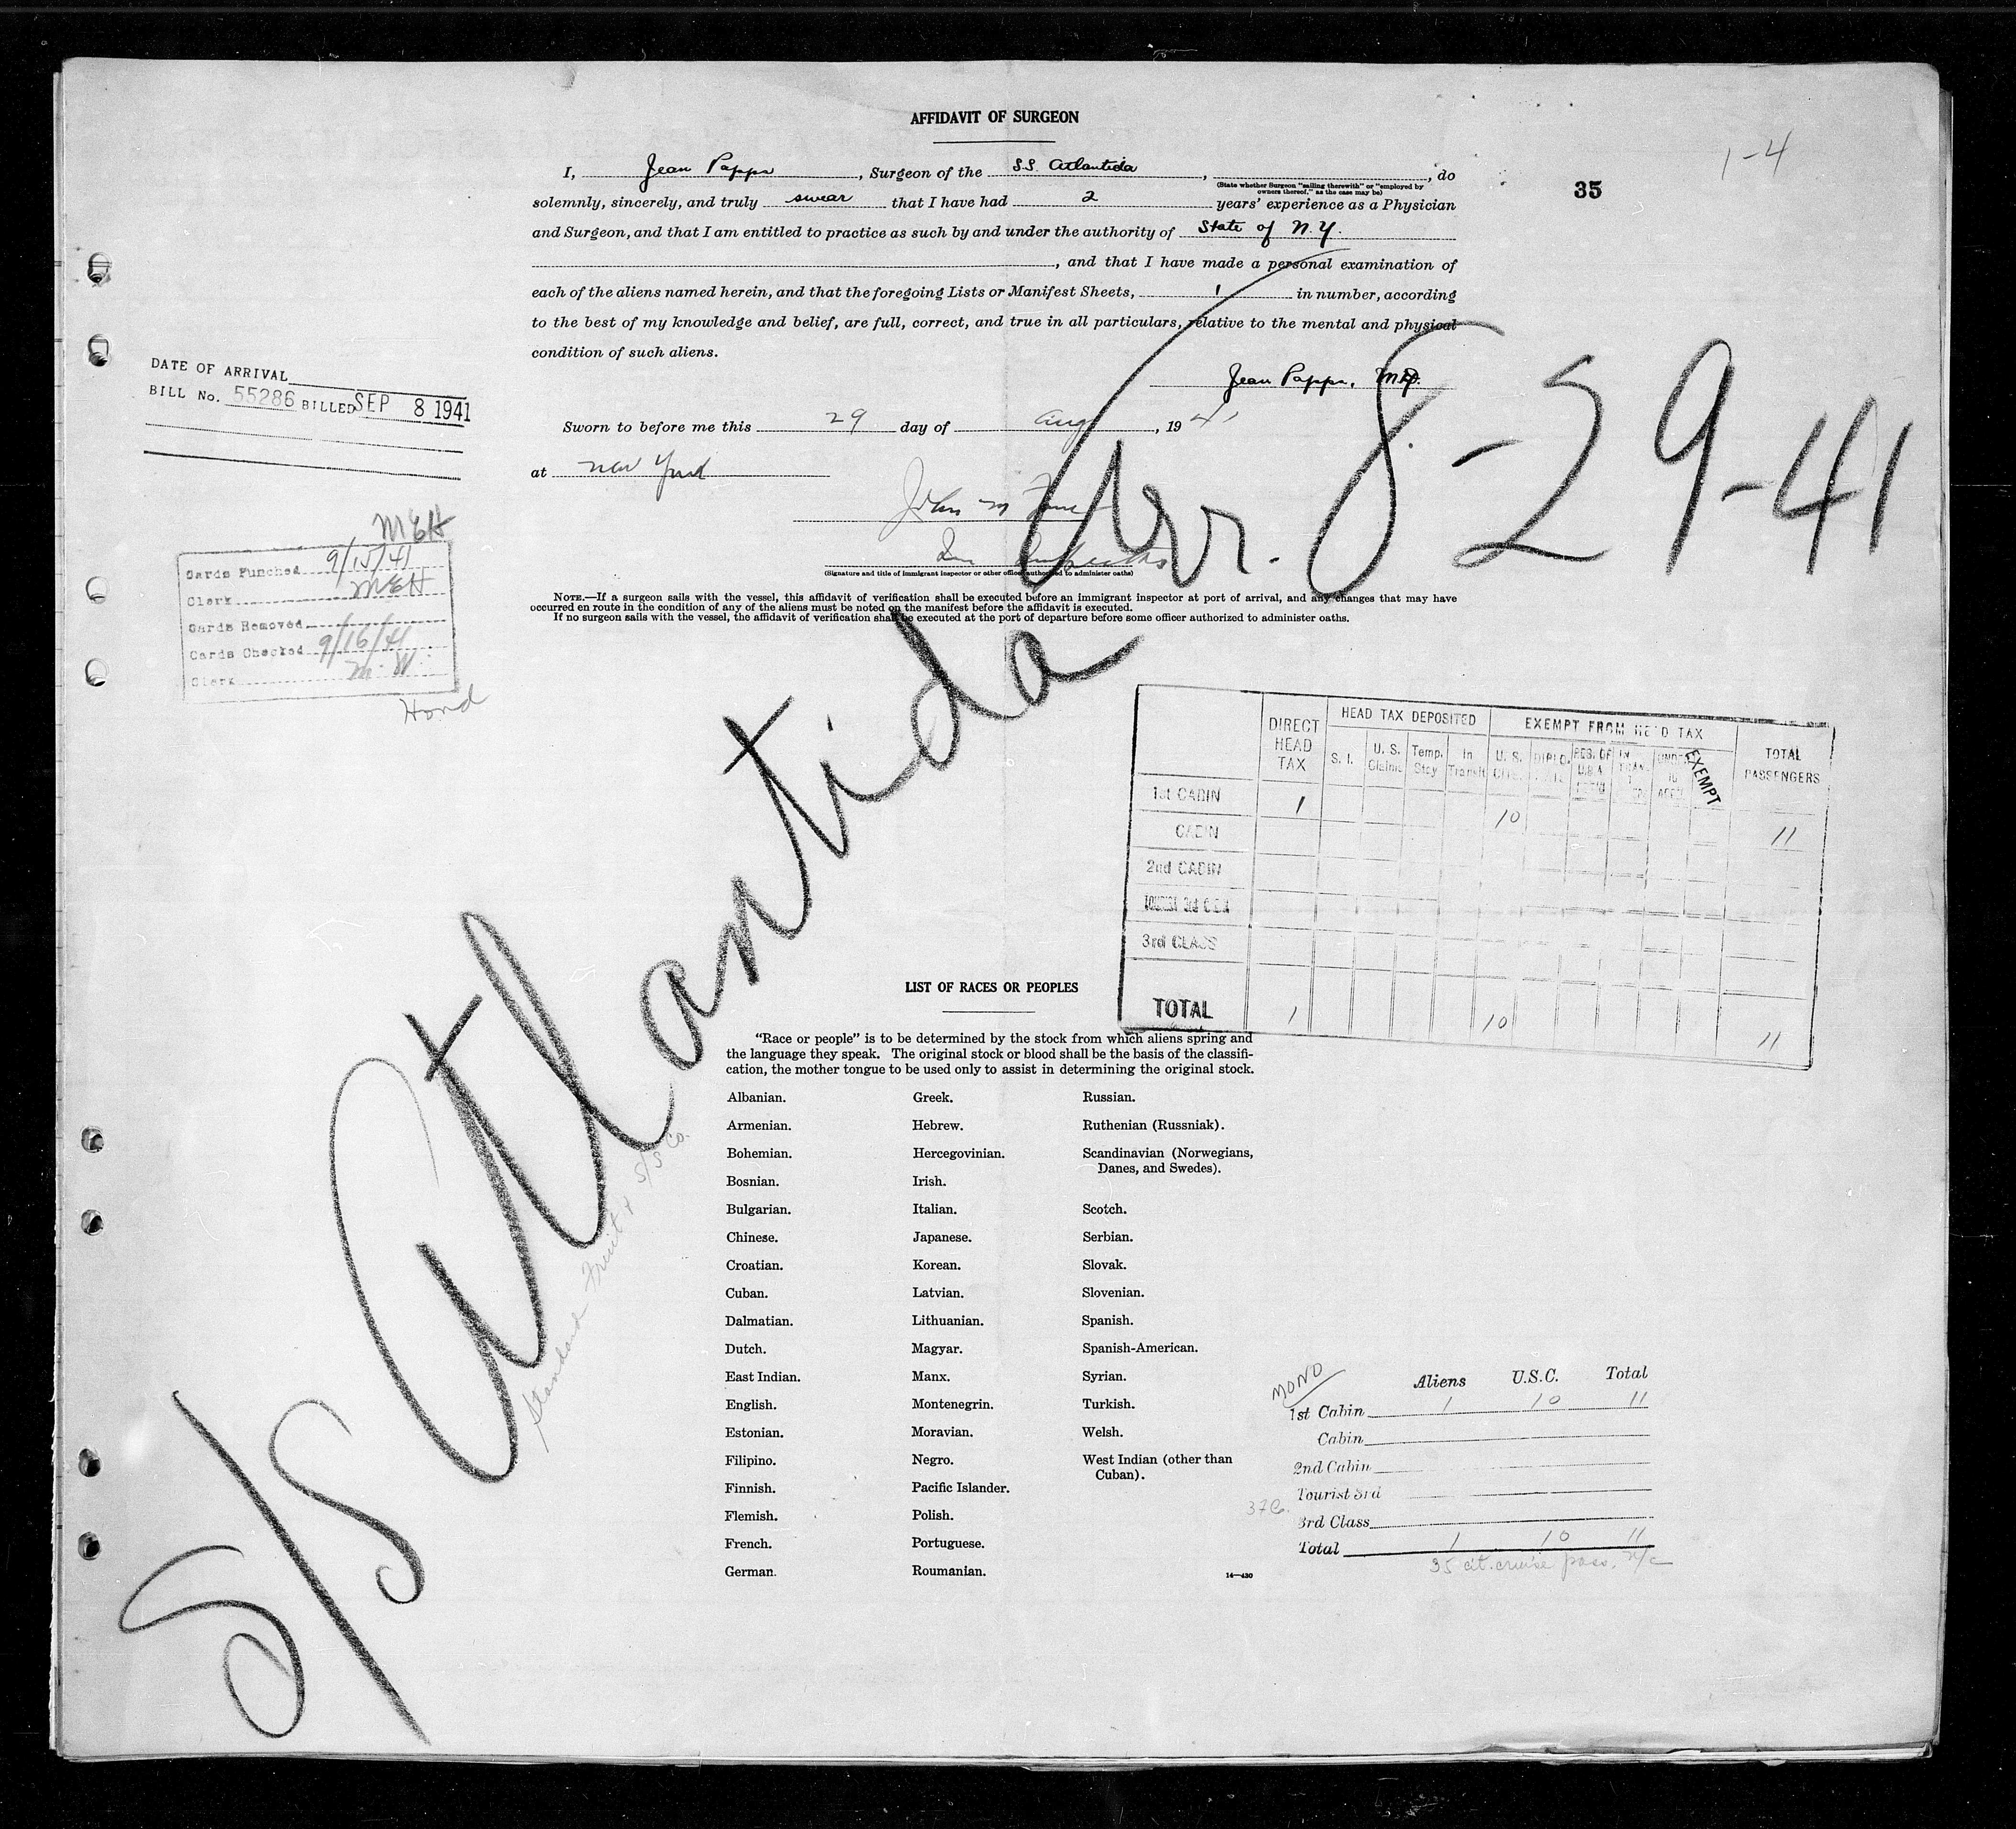 AFFIDAVIT OF SURGEON
1-4
35
I, Jean Pappa, Surgeon of the S.S. Atlantida, , do
(State whether Surgeon "sailing therewith" or "employed by owners thereof," as the case may be)
solemnly, sincerely, and truly swear that I have had 2 years' experience as a Physician
and Surgeon, and that I am entitled to practice as such by and under the authority of State of N.Y.
, and that I have made a personal examination of
each of the aliens named herein, and that the foregoing Lists or Manifest Sheets, 1 in number, according
to the best of my knowledge and belief, are full, correct, and true in all particulars, relative to the mental and physical
condition of such aliens.
Jean Pappa, M.D.
DATE OF ARRIVAL
BILL No. 55286 BILLED SEP 8 1941
Sworn to before me this 29 day of Aug, 1941
at New York
Arr. 8-29-41
John M
(Signature and title of immigrant inspector or other officer authorized to administer oaths)
NOTE.—If a surgeon sails with the vessel, this affidavit of verification shall be executed before an immigrant inspector at port of arrival, and any changes that may have
occurred en route in the condition of any of the aliens must be noted on the manifest before the affidavit is executed.
If no surgeon sails with the vessel, the affidavit of verification shall be executed at the port of departure before some officer authorized to administer oaths.
MEH
Cards Punched 9/15/41
Clerk MEH
Cards Removed
Cards Checked 9/16/41
Clerk M.W.
Hond
S/S Atlantida
Standard Fruit & S/S Co.
DIRECT HEAD TAX
HEAD TAX DEPOSITED
EXEMPT FROM HEAD TAX
TOTAL PASSENGERS
S. I. U. S. Claims Temp. Stay In Transit U. S. EXEMPT
1st CABIN 1 10 11
CABIN
2nd CABIN
TOURIST 3rd
3rd CLASS
TOTAL 1 10 11
LIST OF RACES OR PEOPLES
"Race or people" is to be determined by the stock from which aliens spring and
the language they speak. The original stock or blood shall be the basis of the classifi-
cation, the mother tongue to be used only to assist in determining the original stock.
Albanian. Greek. Russian.
Armenian. Hebrew. Ruthenian (Russniak).
Bohemian. Hercegovinian. Scandinavian (Norwegians,
Danes, and Swedes).
Bosnian. Irish.
Bulgarian. Italian. Scotch.
Chinese. Japanese. Serbian.
Croatian. Korean. Slovak.
Cuban. Latvian. Slovenian.
Dalmatian. Lithuanian. Spanish.
Dutch. Magyar. Spanish-American.
East Indian. Manx. Syrian.
English. Montenegrin. Turkish.
Estonian. Moravian. Welsh.
Filipino. Negro. West Indian (other than
Cuban).
Finnish. Pacific Islander.
Flemish. Polish.
French. Portuguese.
German. Roumanian.
14—430
MONO
Aliens U.S.C. Total
1st Cabin 1 10 11
Cabin
2nd Cabin
Tourist 3rd
3rd Class
Total 1 10 11
35 cit. cruise pass.